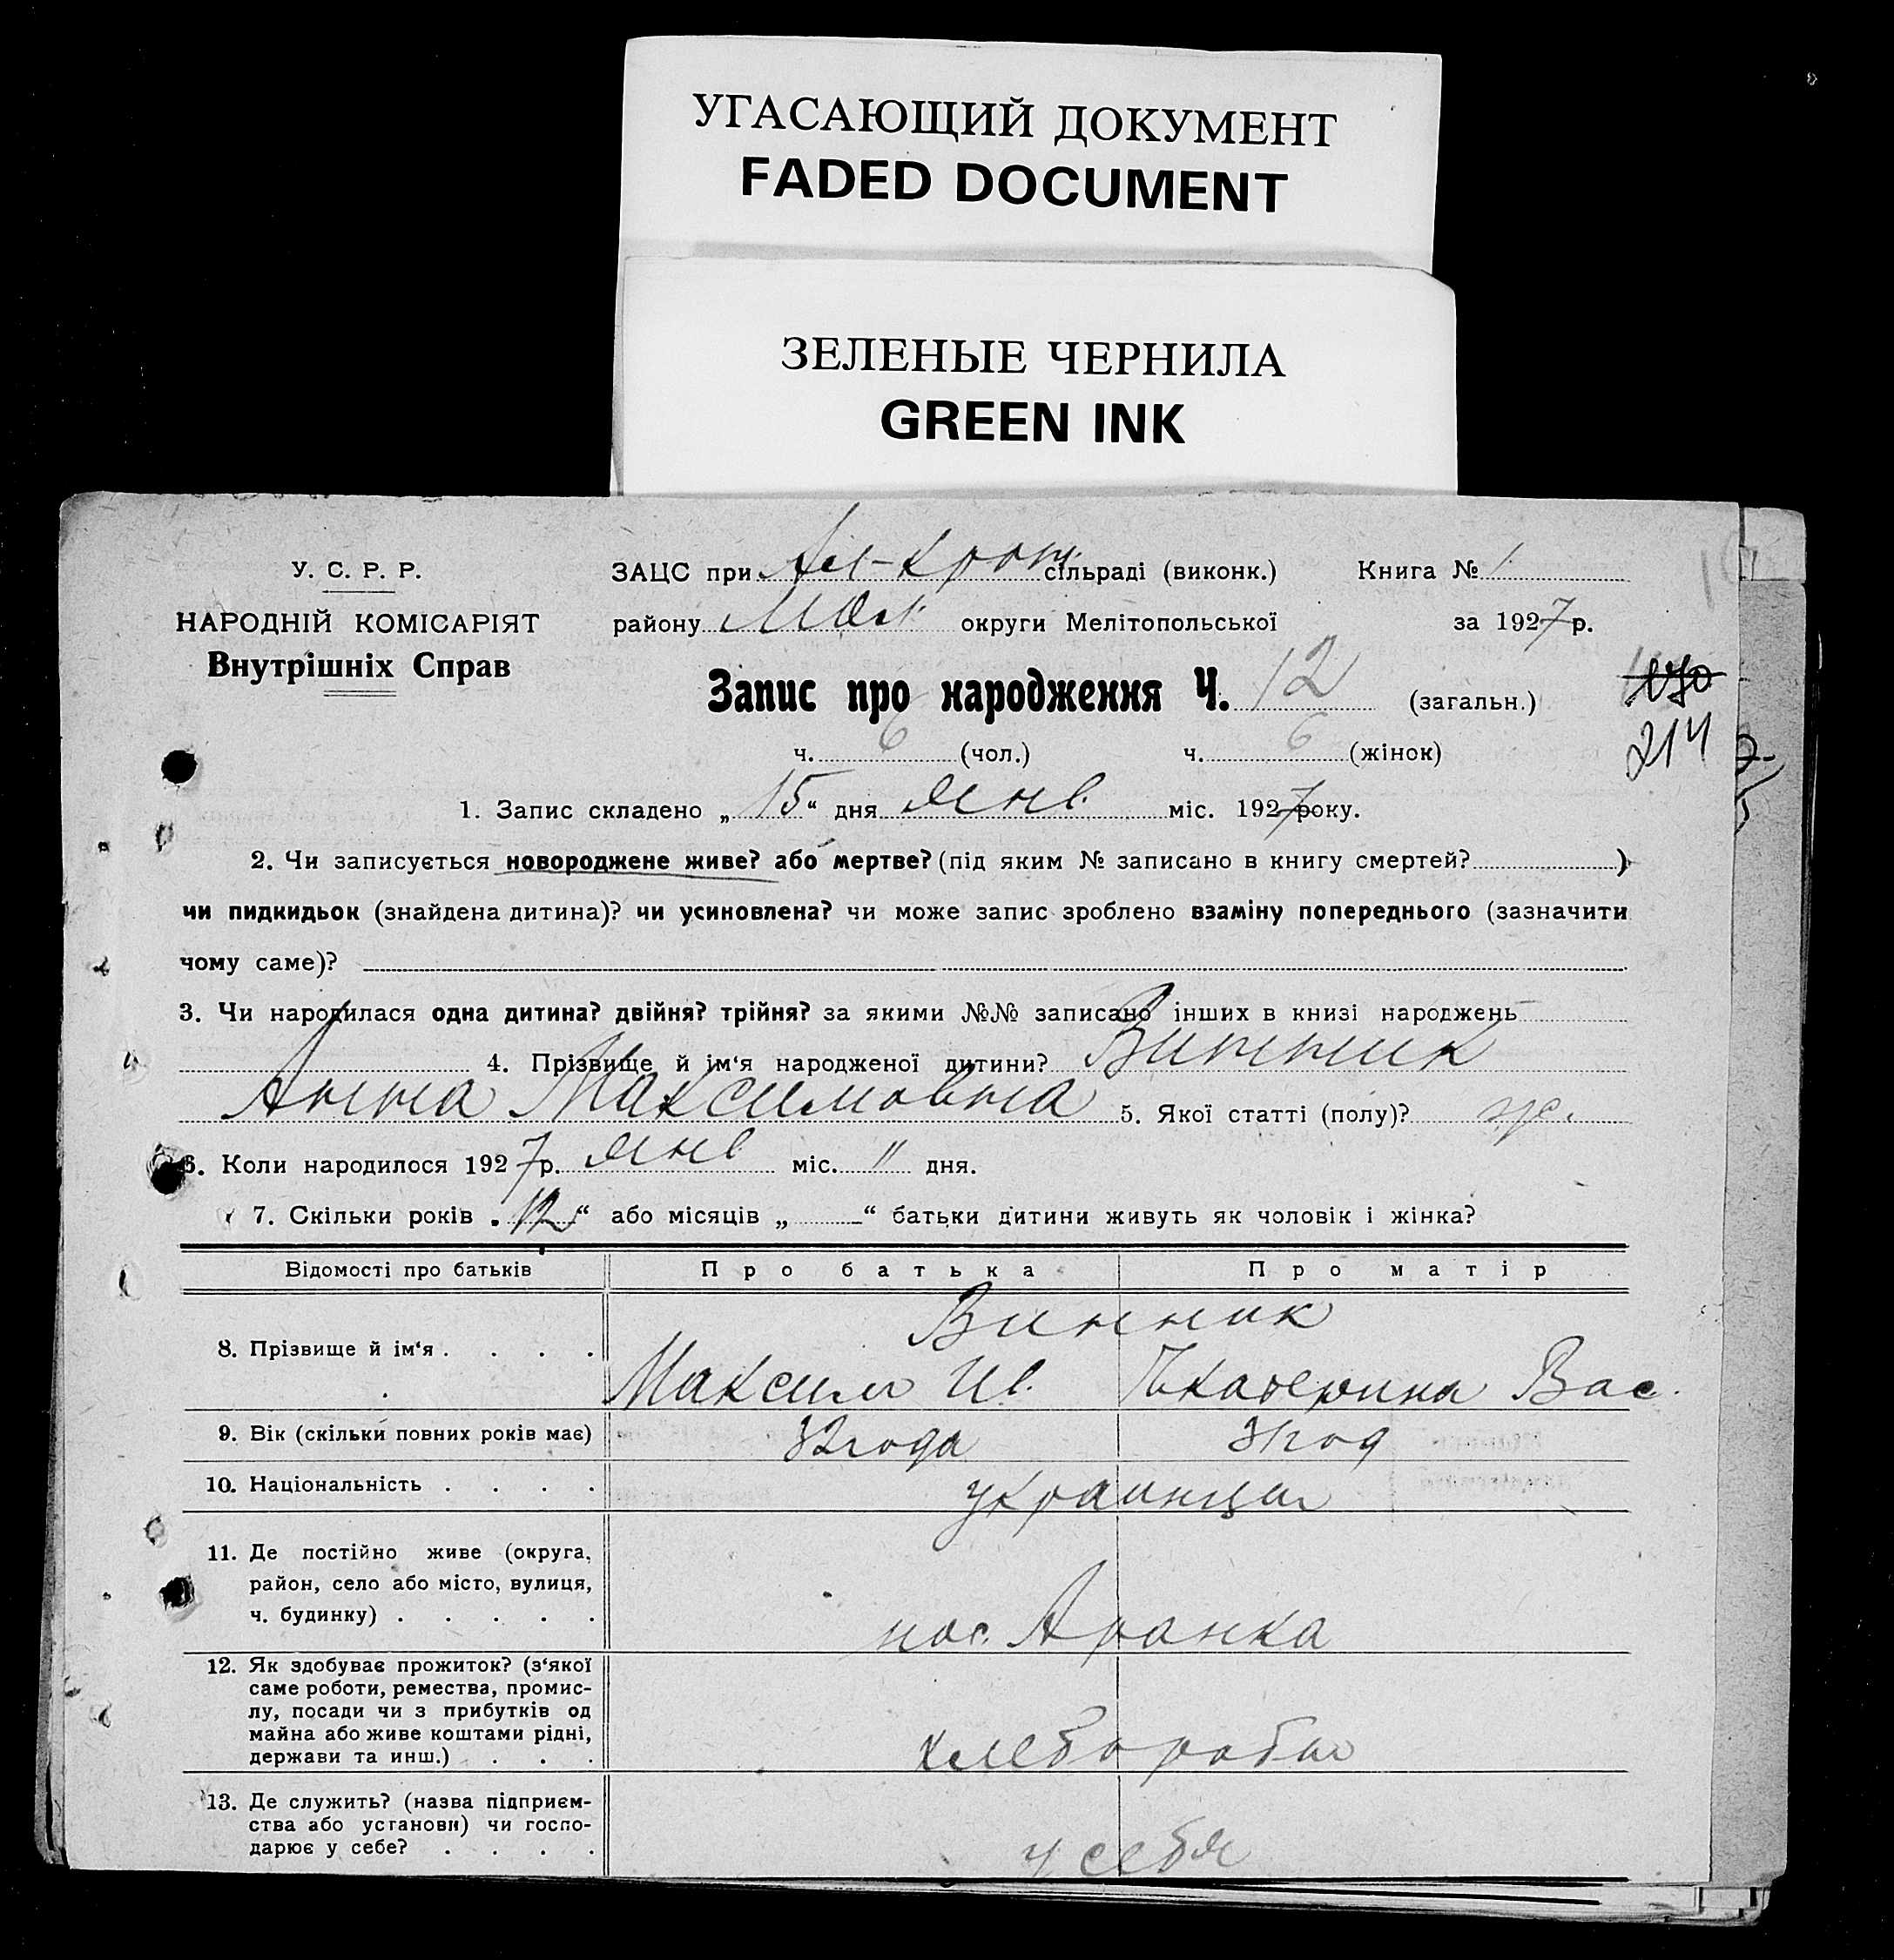 УГАСАЮЩИЙ ДОКУМЕНТ
FADED DOCUMENT
ЗЕЛЕНЫЕ ЧЕРНИЛА
GREEN INK
У. С. Р. Р.
НАРОДНІЙ КОМІСАРІЯТ
Внутрішніх Справ
ЗАЦС при сільраді (виконк.) Книга № 1
району округи Мелітопольської за 1927 р.
Запис про народження Ч. 12 (загальн.)
170
214
ч. 6 (чол.) ч. 6 (жінок)
1. Запис складено „15“ дня Янв. міс. 1927 року.
2. Чи записується новороджене живе? або мертве? (під яким № записано в книгу смертей? )
чи пидкидьок (знайдена дитина)? чи усиновлена? чи може запис зроблено взаміну попереднього (зазначити
чому саме)?
3. Чи народилася одна дитина? двійня? трійня? за якими №№ записано інших в книзі народжень
4. Прізвище й ім‘я народженої дитини? Винник
Анна Максимовна 5. Якої статті (полу)? ж.
6. Коли народилося 1927 р. Янв. міс. 11 дня.
7. Скільки років „12“ або місяців „ “ батьки дитини живуть як чоловік і жінка?
Відомості про батьків Про батька Про матір
8. Прізвище й ім‘я . . . . Винник
Максим Ив. Екатерина Вас.
9. Вік (скільки повних років має) 32 года 31 год
10. Національність . . . . украинцы
11. Де постійно живе (округа,
район, село або місто, вулиця,
ч. будинку) . . . . . пос. Аранка
12. Як здобуває прожиток? (з‘якої
саме роботи, ремества, промис-
лу, посади чи з прибутків од
майна або живе коштами рідні,
держави та инш.) . . . хлеборобы
13. Де служить? (назва підприєм-
ства або установи) чи госпо-
дарює у себе? . . . . у себя